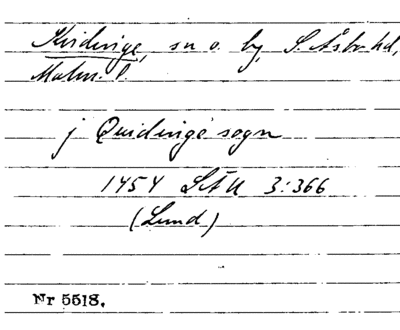 Kvidinge, sn o. by, S. Åsbo hd,
Malm. l.
j Quidinge sogn
1454 LÄU 3:366
(Lund)
Nr 5518.